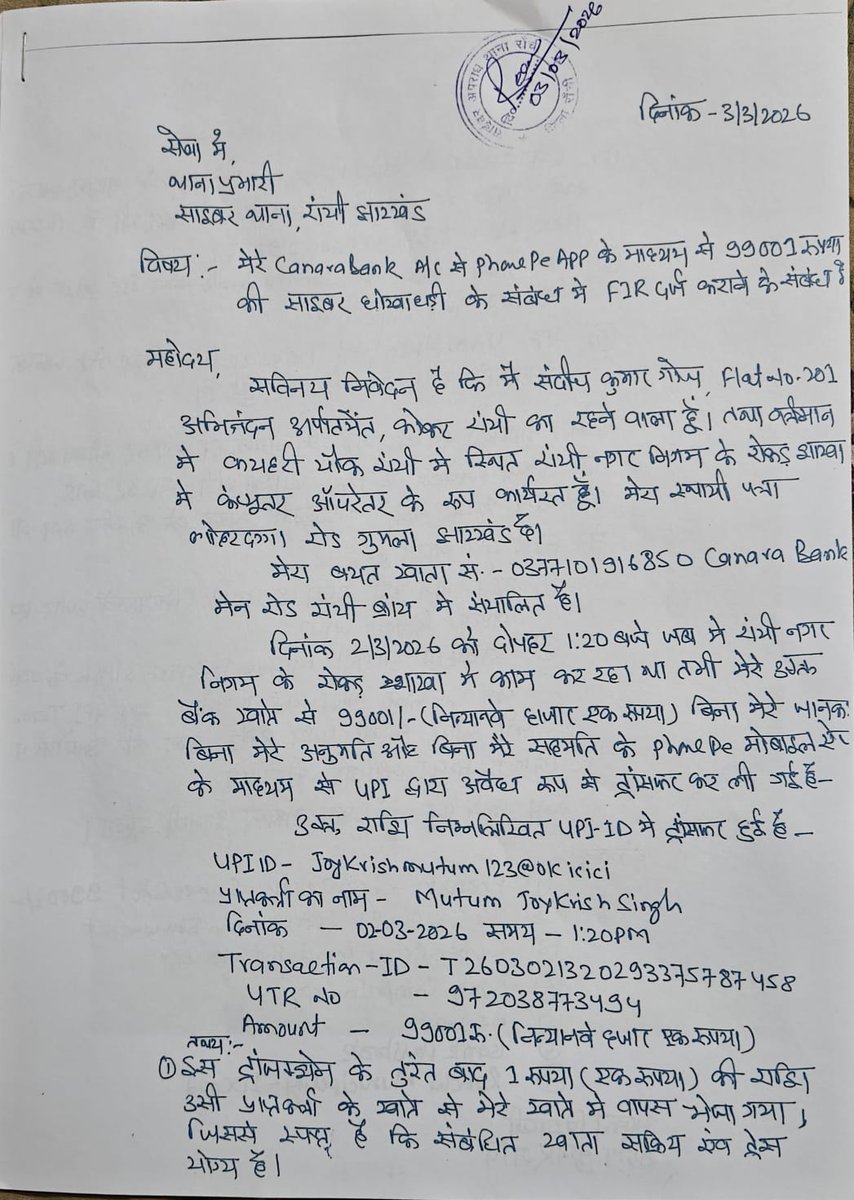 साइबर अपराध थाना राँची
03/03/2026
दिनांक - 3/3/2026
सेवा में,
थाना प्रभारी
साइबर थाना, रांची झारखंड
विषय :- मेरे Canara Bank A/c से PhonePe App के माध्यम से 99001 रुपया
की साइबर धोखाधड़ी के संबंध में FIR दर्ज कराने के संबंध में
महोदय,
सविनय निवेदन है कि मैं संदीप कुमार गोप, Flat No. 201
अभिनंदन अपार्टमेंट, कोकर रांची का रहने वाला हूँ। तथा वर्तमान
मे कचहरी चौक रांची मे स्थित रांची नगर निगम के रोकड़ शाखा
मे कंप्यूटर ऑपरेटर के रूप कार्यरत हूँ। मेरा स्थायी पता
लोहरदगा रोड गुमला झारखंड है।
मेरा बचत खाता सं. - 0377101916850 Canara Bank
मेन रोड रांची ब्रांच मे संचालित है।
दिनांक 2/3/2026 को दोपहर 1:20 बजे जब मे रांची नगर
निगम के रोकड़ शाखा मे काम कर रहा था तभी मेरे उक्त
बैंक खाते से 99001/- (निन्यानवे हजार एक रुपया) बिना मेरे
बिना मेरे अनुमति और बिना मेरे सहमति के PhonePe मोबाइल ऐप
के माध्यम से UPI द्वारा अवैध रूप से ट्रांसफर कर ली गई है–
उक्त राशि निम्नलिखित UPI-ID मे ट्रांसफर हुई है –
UPI ID - Joykrishmutum123@okicici
प्राप्तकर्ता का नाम - Mutum JoyKrish Singh
दिनांक - 02-03-2026 समय - 1:20PM
Transaction-ID - T2603021320293375787458
UTR NO - 972038773494
Amount - 99001रु. (निन्यानवे हजार एक रुपया)
तथ्य:-
① इस ट्रांजेक्शन के तुरंत बाद 1 रुपया (एक रुपया) की राशि
उसी प्राप्तकर्ता के खाते से मेरे खाते मे वापस भेजा गया,
जिससे स्पष्ट है कि संबंधित खाता सक्रिय एवं ट्रेस
योग्य है।